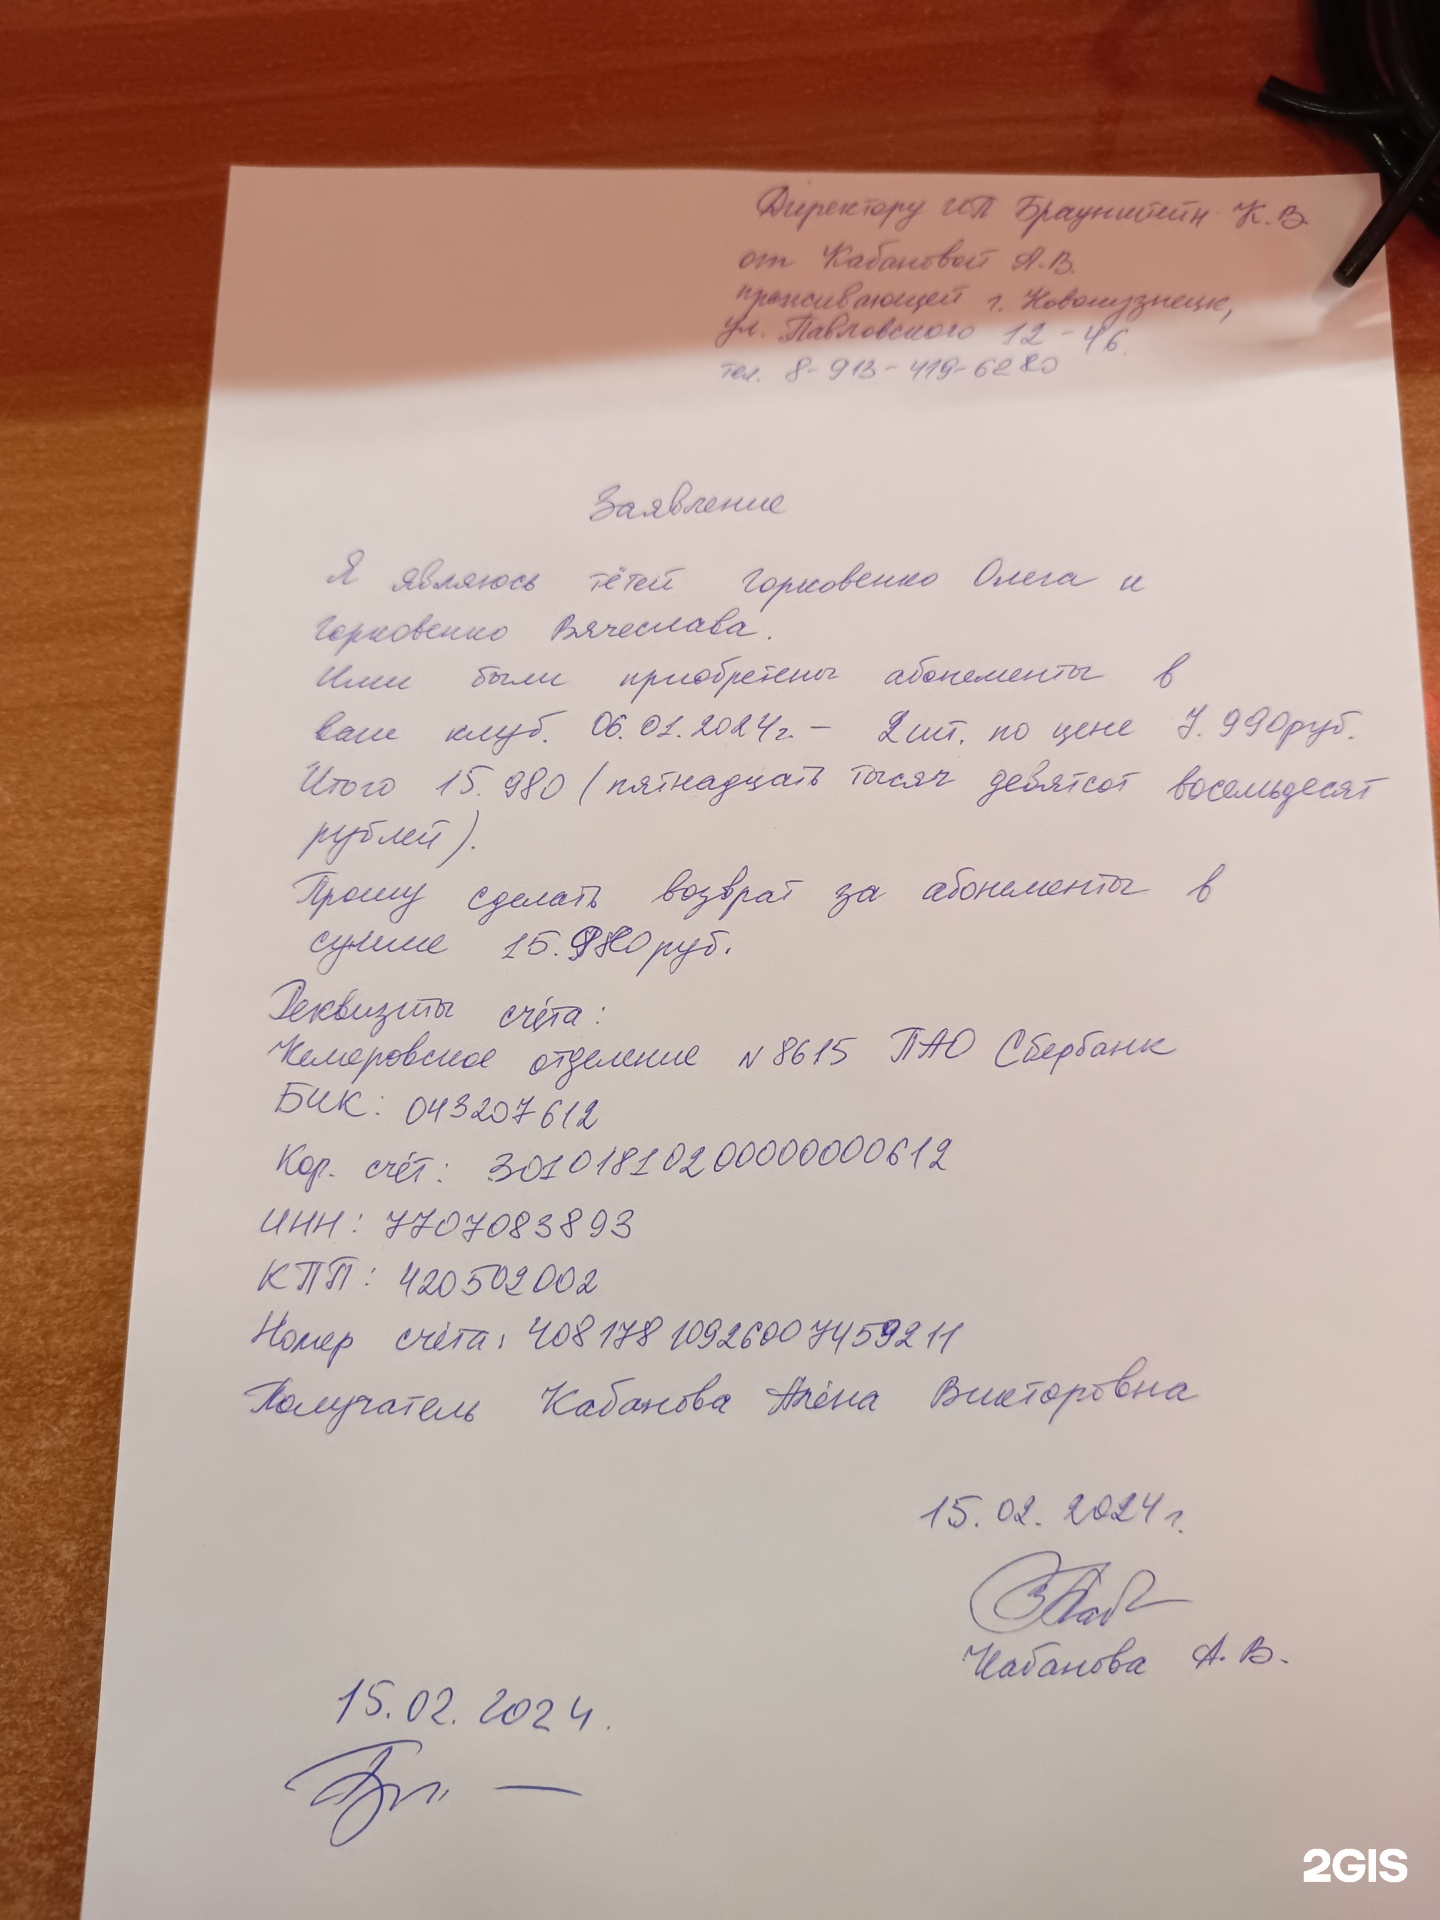 Директору ИП Браунштейн К.В.
от Кабановой А.В.
проживающей г. Новокузнецк,
ул. Павловского 12-46.
тел. 8-913-419-6280
Заявление
Я являюсь тётей Горковенко Олега и
Горковенко Вячеслава.
Ими были приобретены абонементы в
ваш клуб. 06.01.2024г. - 2шт. по цене 7.990руб.
Итого 15.980 (пятнадцать тысяч девятсот восемьдесят
рублей).
Прошу сделать возврат за абонементы в
сумме 15.980руб.
Реквизиты счёта:
Кемеровское отделение N8615 ПАО Сбербанк
БИК: 043207612
Кор. счёт: 30101810200000000612
ИНН: 7707083893
КПП: 420502002
Номер счёта: 40817810926007459211
Получатель Кабанова Алёна Викторовна
15.02.2024г.
Кабанова А.В.
15.02.2024.
2GIS